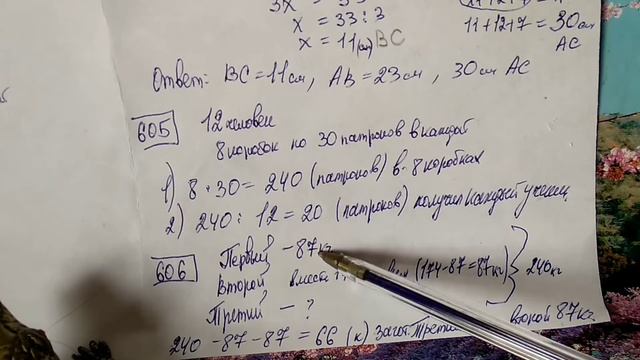 x = 33 : 3
x = 11 (см) BC
11+12+7 = 30 см
AC
Ответ: BC = 11 см, AB = 23 см, 30 см AC
605
12 человек
8 коробок по 30 патронов в каждой
1) 8 · 30 = 240 (патронов) в 8 коробках
2) 240 : 12 = 20 (патронов) получил каждый ученик
606
Первый – 87 кг
Второй вместе (174-87=87кг) 240кг
Третий – ?
240 - 87 - 87 = 66 (к) второй 87кг